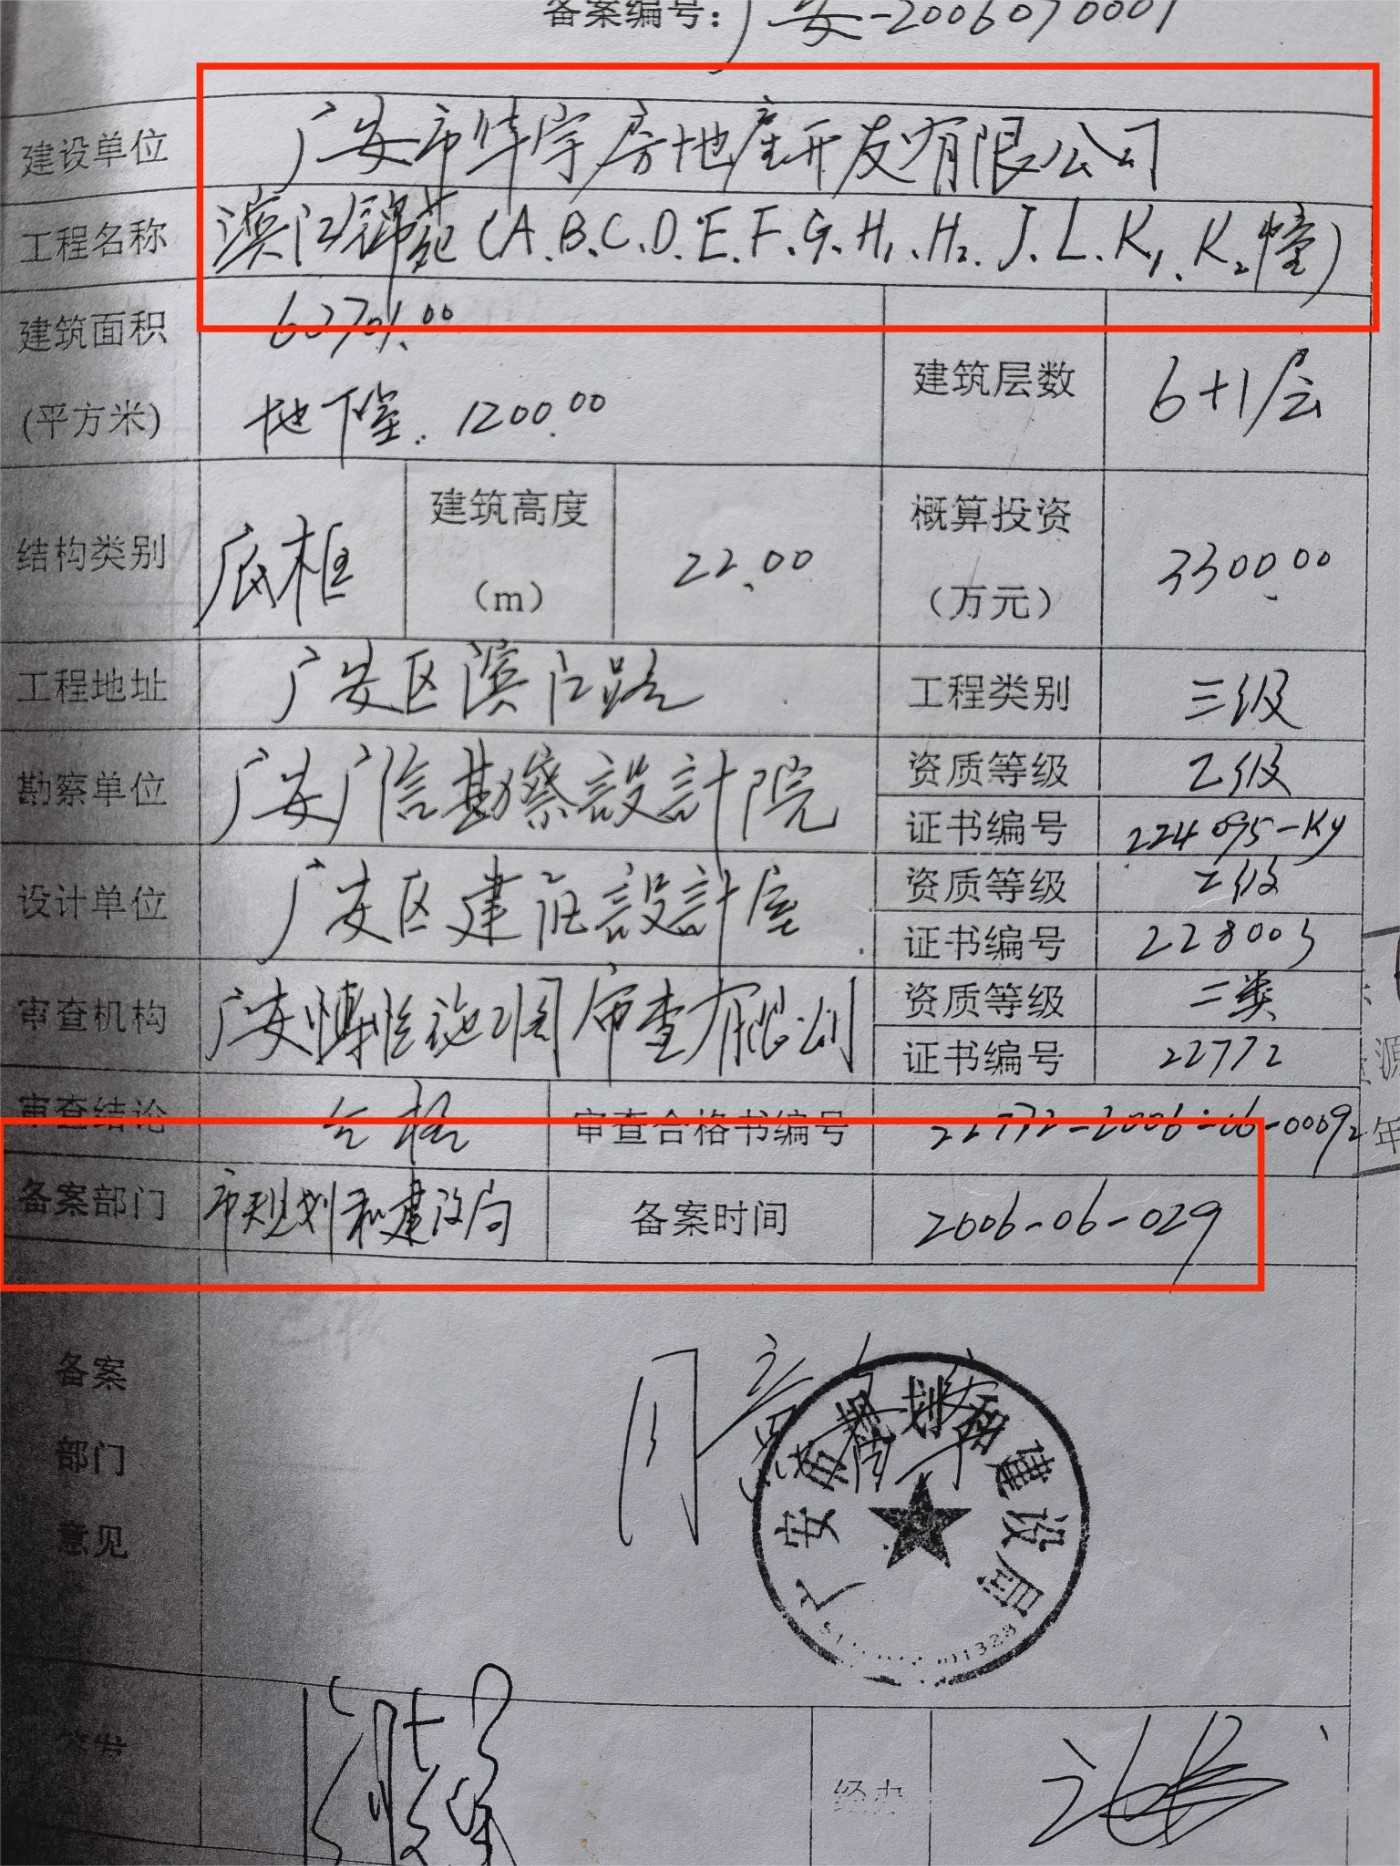 备案编号：广安-2006070001
建设单位 广安市华宇房地产开发有限公司
工程名称 滨江锦苑（A.B.C.D.E.F.G.H1.H2.J.L.K1.K2幢）
建筑面积 .00 建筑层数 6+1层
(平方米) 地下室：1200.00
结构类别 底框 建筑高度（m） 22.00 概算投资（万元） 3300.00
工程地址 广安区滨江路 工程类别 三级
勘察单位 广安广信勘察設計院 资质等级 乙级
证书编号 224095-Ky
设计单位 广安区建筑設計室 资质等级
证书编号 228003
审查机构 广安 施工图审查有限公司 资质等级 二类
证书编号 22772
审查结论 合格 审查合格书编号 22772-2006-06-0009
备案部门 市规划和建设局 备案时间 2006-06-029
备案
部门
意见
同意备案
广安市规划和建设局
1328
签发 经办
源
年